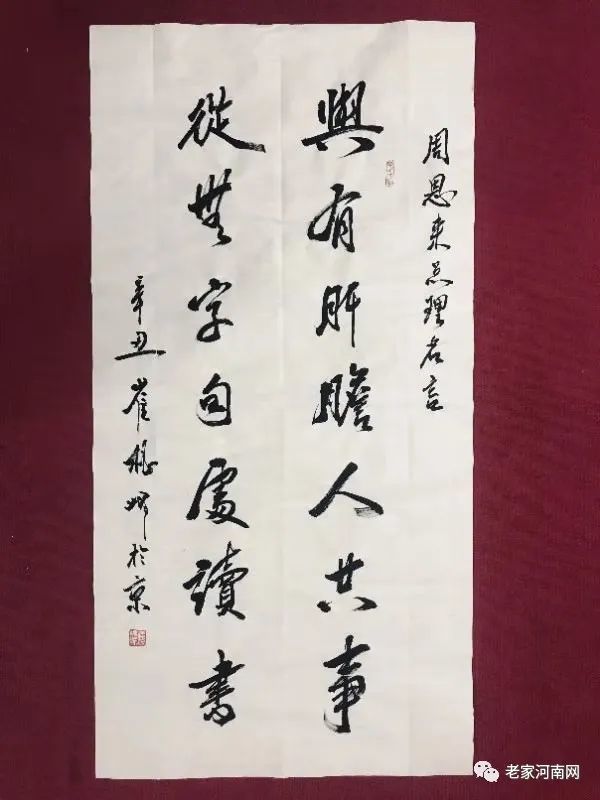 周恩来总理名言
與有肝膽人共事
從無字句處讀書
辛丑 崔 於京
老家河南网